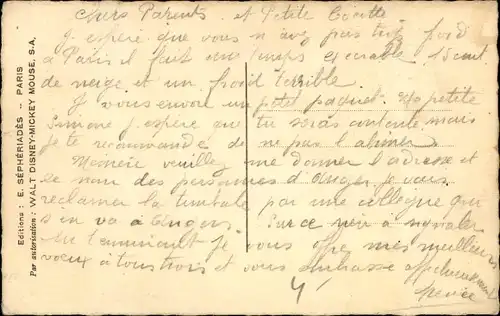 chers Parents et Petite
j espère que vous n avez pas trop froid
à Paris il fait un temps exécrable 15 cent
de neige et un froid terrible
J vous envoie un petit paquet. Ma petite
Simone j espère que tu seras contente mais
je te recommande de ne pas l abimer
veuillez me donner l adresse et
le nom des personnes d Angers je vais
reclamer la timbale par une collegue qui
s en va à Angers
je vous offre mes meilleurs
vœux à tous trois et vous embrasse affectueusement
Editions : E. SÉPHÉRIADÈS -- PARIS
Par autorisation : WALT DISNEY-MICKEY MOUSE, S.A.